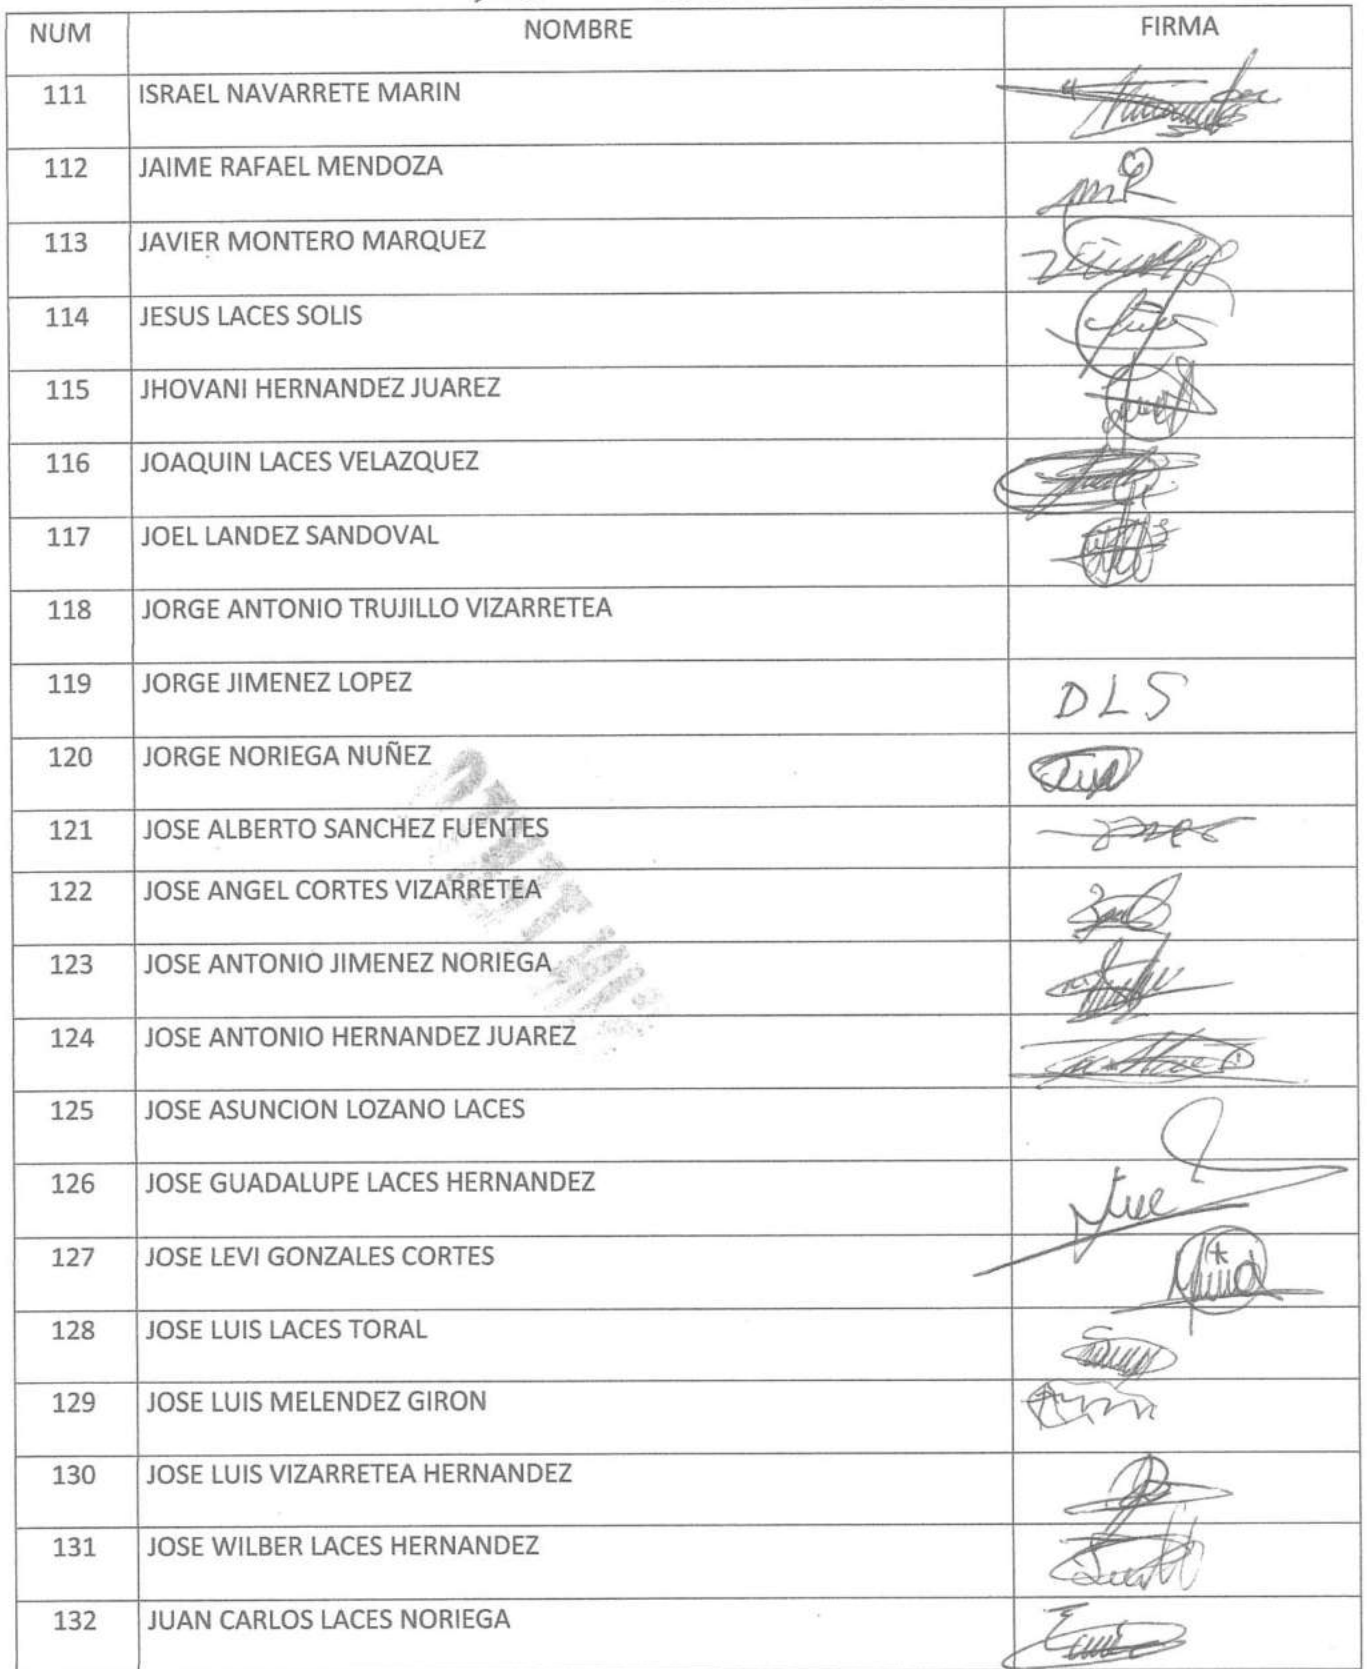 NUM NOMBRE FIRMA
111 ISRAEL NAVARRETE MARIN
112 JAIME RAFAEL MENDOZA
113 JAVIER MONTERO MARQUEZ
114 JESUS LACES SOLIS
115 JHOVANI HERNANDEZ JUAREZ
116 JOAQUIN LACES VELAZQUEZ
117 JOEL LANDEZ SANDOVAL
118 JORGE ANTONIO TRUJILLO VIZARRETEA
119 JORGE JIMENEZ LOPEZ DLS
120 JORGE NORIEGA NUÑEZ
121 JOSE ALBERTO SANCHEZ FUENTES
122 JOSE ANGEL CORTES VIZARRETEA
123 JOSE ANTONIO JIMENEZ NORIEGA
124 JOSE ANTONIO HERNANDEZ JUAREZ
125 JOSE ASUNCION LOZANO LACES
126 JOSE GUADALUPE LACES HERNANDEZ
127 JOSE LEVI GONZALES CORTES
128 JOSE LUIS LACES TORAL
129 JOSE LUIS MELENDEZ GIRON
130 JOSE LUIS VIZARRETEA HERNANDEZ
131 JOSE WILBER LACES HERNANDEZ
132 JUAN CARLOS LACES NORIEGA